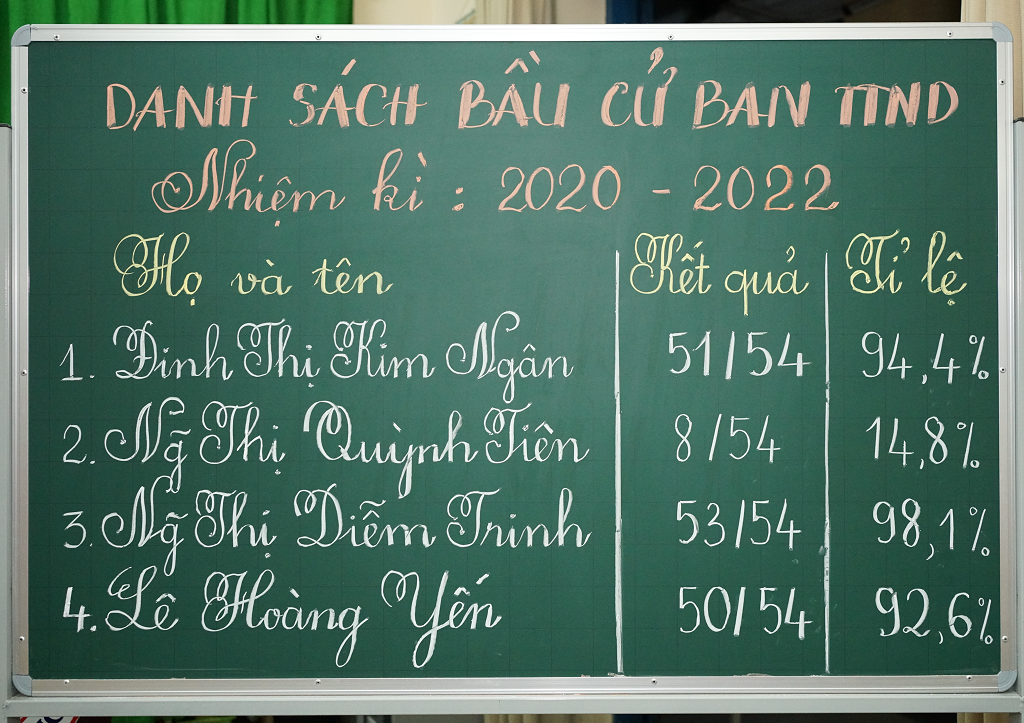 DANH SÁCH BẦU CỬ BAN TTND
Nhiệm kì : 2020 - 2022
Họ và tên Kết quả Tỉ lệ
1. Đinh Thị Kim Ngân 51/54 94,4%
2. Ng̃ Thị Quỳnh Tiên 8/54 14,8%
3. Ng̃ Thị Diễm Trinh 53/54 98,1%
4. Lê Hoàng Yến 50/54 92,6%